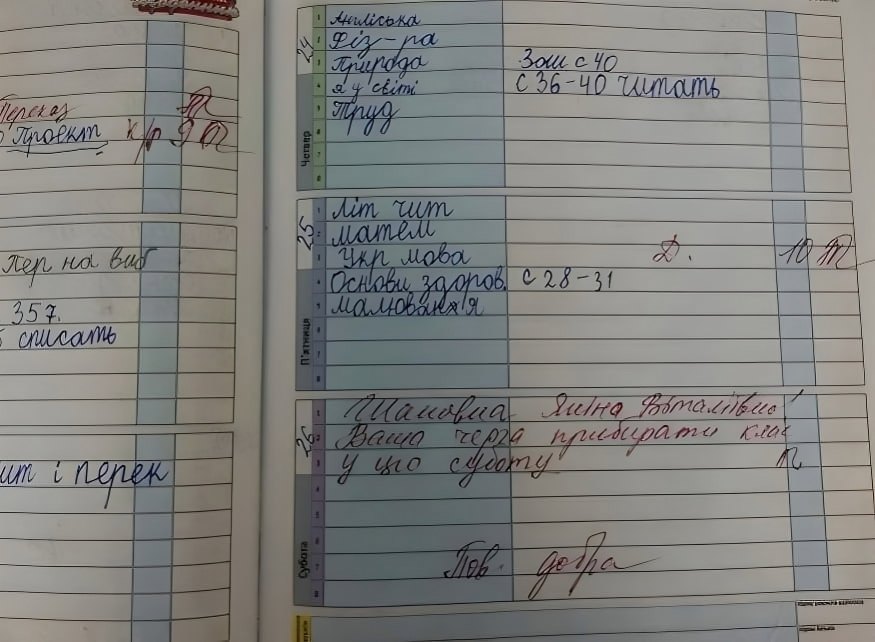 Переказ
Проект к/р 9
пер на виб
357.
списать
і перек
24
Четвер
1 Англіська
2 Фіз-ра
3 Природа Зош с 40
4 я у світі с 36-40 читать
5 Труд
6
7
8
25
П'ятниця
1 Літ чит
2 матем
3 Укр мова Д. 10
4 Основи здоров. с 28-31
5 малювання
6
7
8
26
Субота
1 Шановна Яніна Віталіївно!
2 Ваша черга прибирати клас
3 у цю суботу
4
5
6
7 Пов. добра
8